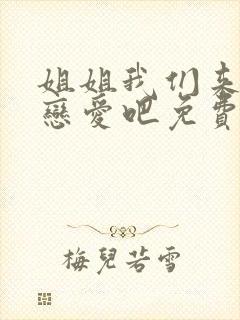 姐姐我们来
戀愛吧免費
梅兒若雪